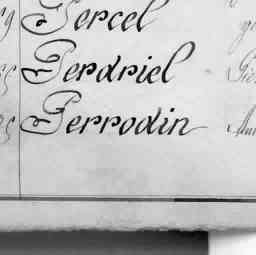 Percel
Perdriel
Perrodin